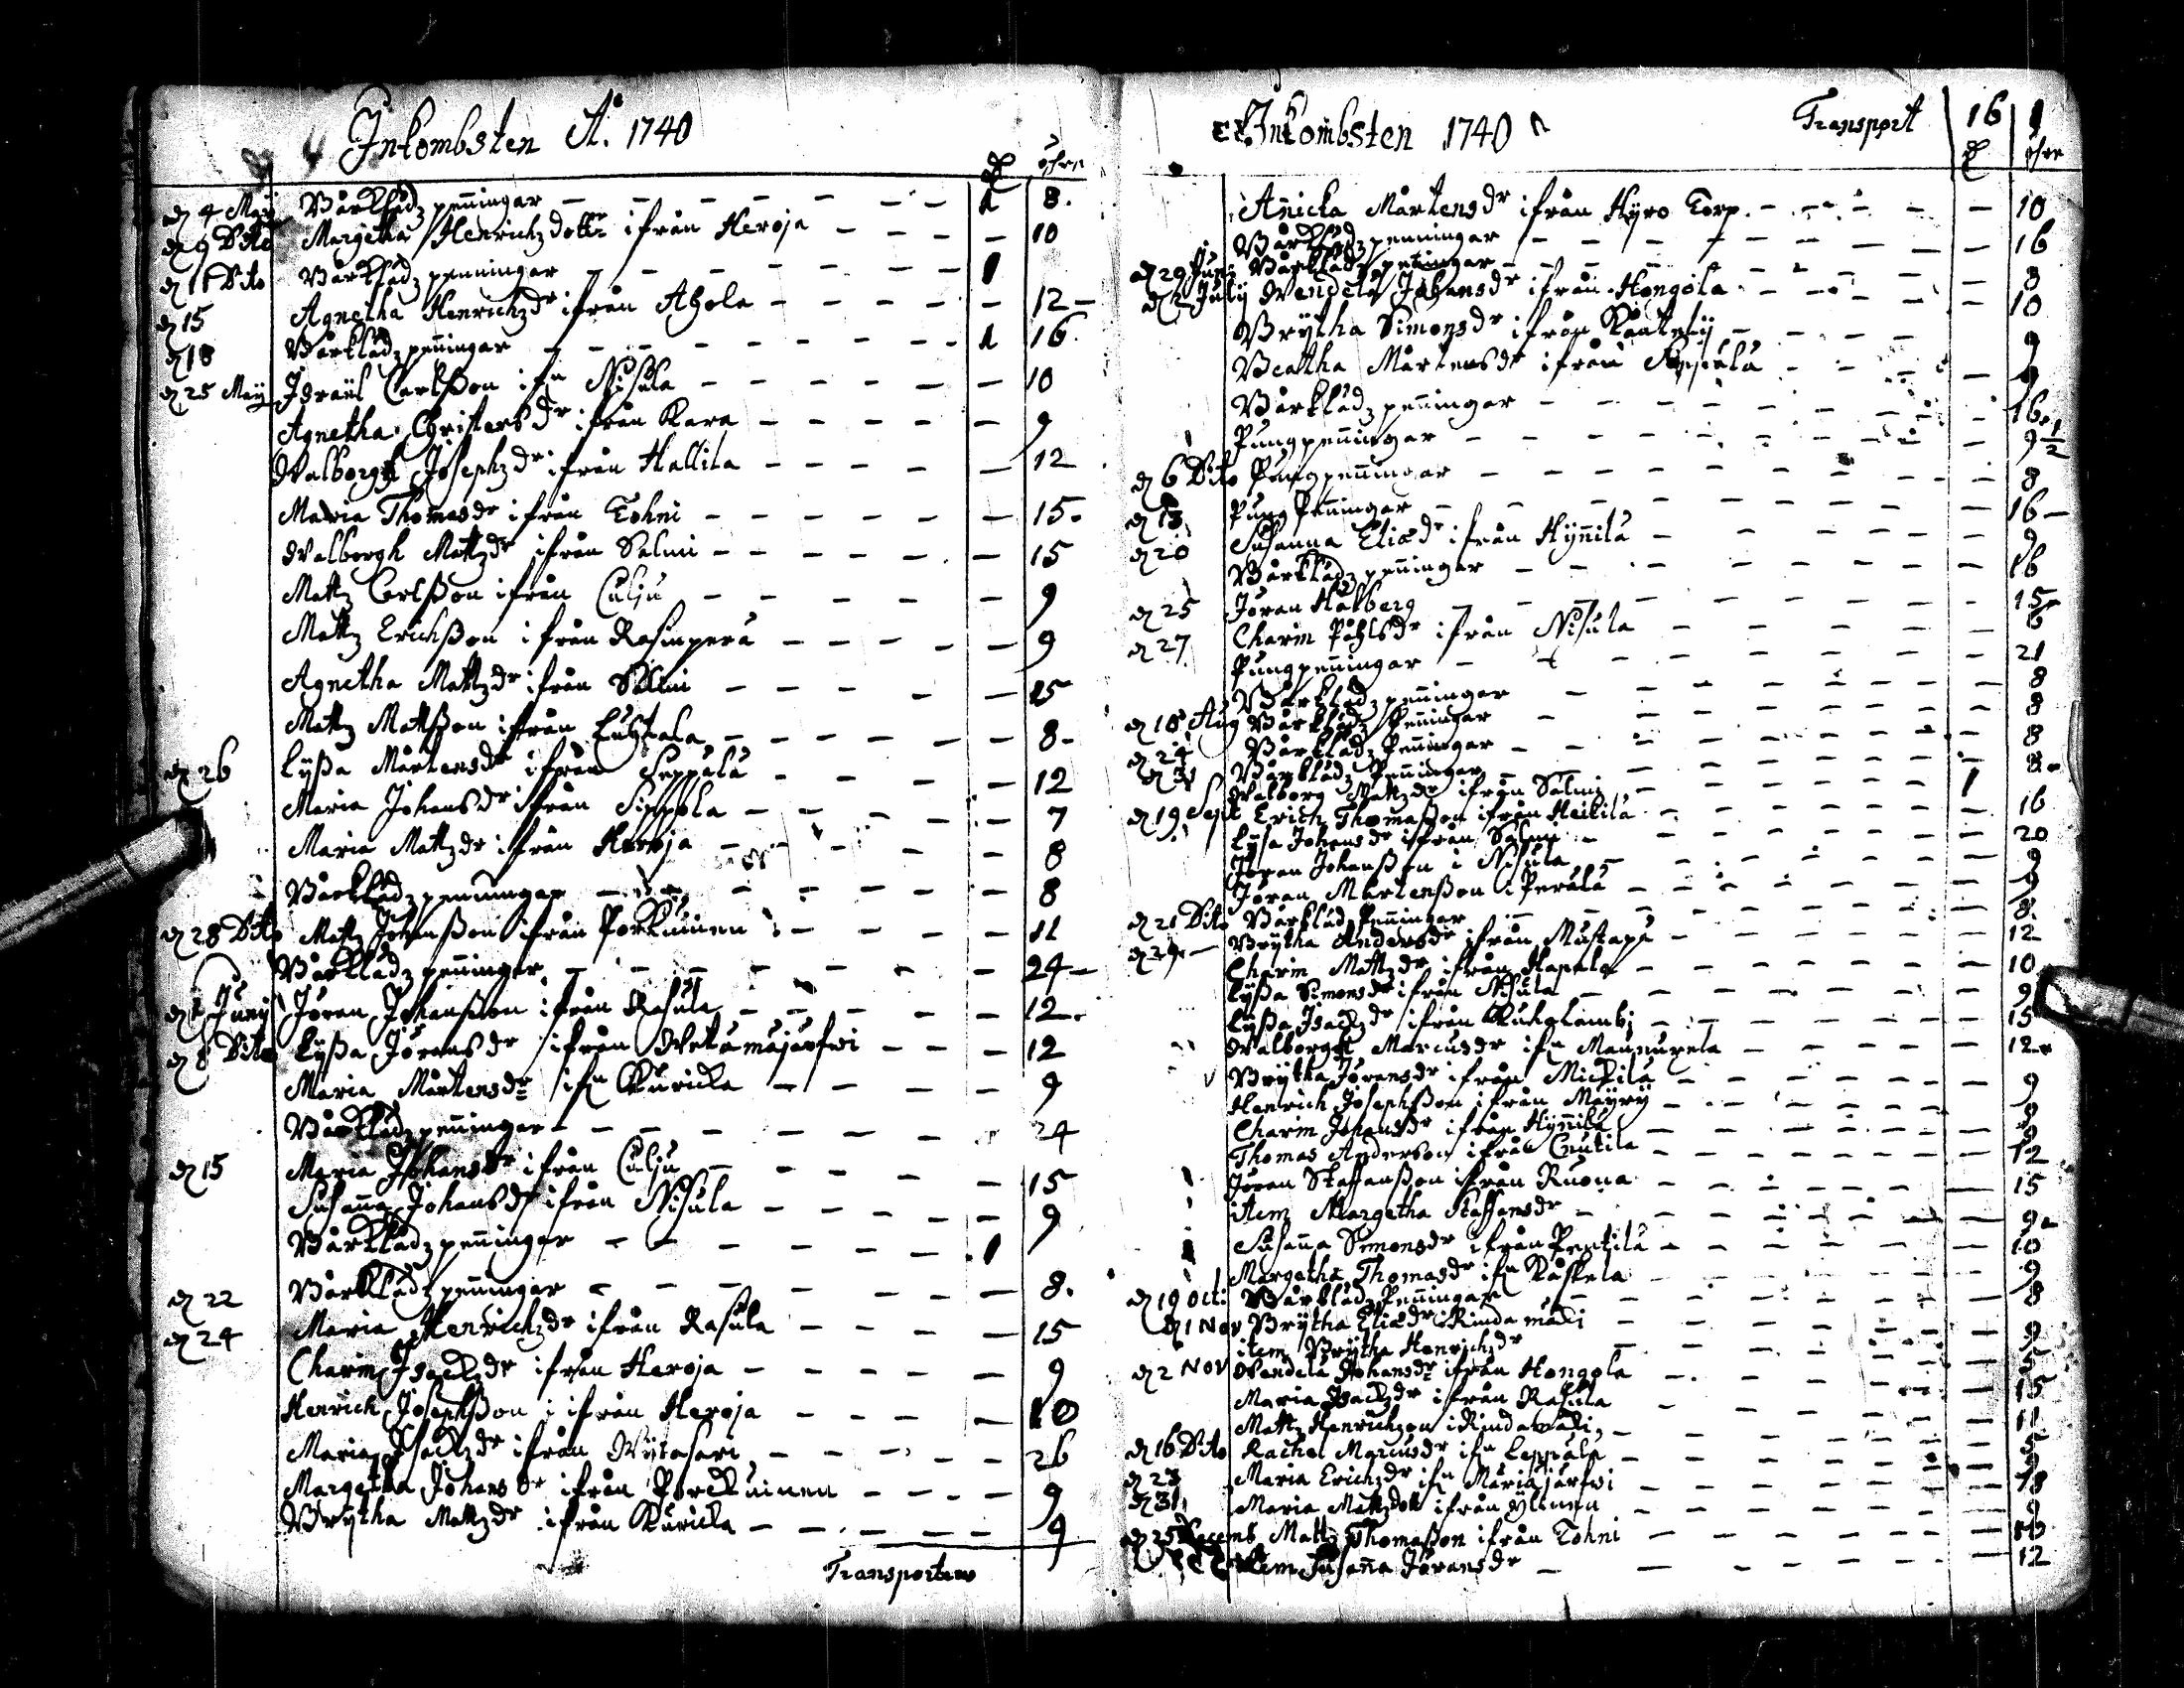 Inkombsten A:o 1740
öhre
d 4 Maÿ Vårklädz penningar 1 8.
d 9 Dito Margetha Henrichzdotter ifrån Heroja 10
d 11 Dito Vårklädz penningar 1
d 15 Agnetha Henrichzdr ifrån Ahola 12
d 18 Vårklädz peñingar 1 16
d 25 Maÿ Israel Carlsson ifn Nisula 10
Agnetha Christersdr ifrån Kara 9
Walborgh Josephzdr ifrån Hallila 12
Maria Thomasdr ifrån Tohni 15.
Walborgh Mattzdr ifrån Salmi 15
Mattz Carlsson ifrån Culju 9
Mattz Erichsson ifrån Rasinperä 9
Agnetha Mattzdr ifrån Salmi 15
Mattz Mattsson ifrån 8
d 26 Lyssa Mårtensdr ifrån Seppälä 12
Maria Johansdr ifrån Sippola 7
Maria Mattzdr ifrån Heroja 8
Vårklädz penningar 8
d 28 Dito Mattz Johansson ifrån Porkuinen 11
Vårklädz peñingar 24
d 1 Junÿ Jöran Johansson ifrån Rasula 12.
d 8 Dito Lyssa Jöransdr ifrån Wetämäjärfwi 12
Maria Mårtensdr ifn Kuricka 9
Vårklädz peñingar 24
d 15 Maria Johansdr ifrån Culju 15
Susaña Johansdr ifrån Nisula 9
Vårklädz peñingar 1
d 22 Vårklädz peñingar 8.
d 24 Maria Henrichzdr ifrån Rasula 15
Charin Isackzdr ifrån Heroja 9
Henrich Josephsson ifrån Heroja 10
Maria Isackzdr ifrån Wÿtasari 26
Margetha Johansdr ifrån Porckuinen 9
Brÿtha Mattzdr ifrån Kuricka 9
Transporteras
Inkombsten 1740
Transport 16 1
öhre
Añicka Mårtensdr ifrån Hyro Torp 10
Vårklädz penningar 16
d 29 Juni Vårklädz peñingar 8
d 2 Julÿ Wendela Johansdr ifrån Hongola 10
Brÿtha Simonsdr ifrån 9
Beatha Mårtensdr ifrån Seppälä 9
Vårklädz peñingar 16.
Pungpeñingar 9 1/2
d 6 Dito Pungpeñingar 8
d 13 Pung Peñingar 16
d 20 Susanna Eliædr ifrån Hÿnnilä 9
Vårklädz peñingar 16
d 25 Jöran Hålberg 15
d 27 Charin Påhlsdr ifrån Nisula 6
Pungpeñingar 21
Vårklädz peñingar 8
d 10 Aug Vårklädz Peñingar 8
d 24 Vårklädz Peñingar 8
d 31 Vårklädz Peñingar 8
Walborg Mattzdr ifrån Salmi 1
d 19 Sept Erich Thomasson ifrån Heikilä 16
Lysa Johansdr ifrån Salmi 20
Jöran Johansson i Nisula 9
Jöran Mårtensson i Perälä 9
d 21 Dito Vårklädz Peñingar 8.
d 29 Brÿtha Andersdr ifrån Mustapä 12
Charin Mattzdr ifrån Hapala 10
Lÿssa Simonsdr ifrån Nisula 9
Lÿssa Isackzdr ifrån Kuhalambi 15
Walborgh Marcusdr ifn Mannurela 12
Brÿtha Jöransdr ifrån Mickilä 9
Henrich Josephsson ifrån Mäÿrÿ 9
Charin Johansdr ifrån Hÿnnilä 9
Thomas Andersson ifrån Cnutila 12
Jöran Staffansson ifrån Ruona 15
item Margetha Staffansdr 9
Susaña Simonsdr ifrån Pentilä 10
Margetha Thomasdr ifn Kåskela 9
d 19 Oct: Vårklädz Peñingar 8
d 1 Nov Brÿtha Eliædr Rindamäki 9
item Brÿtha Henrichzdr
d 2 Nov Wendela Johansdr ifrån Hongola
Maria Isackzdr ifrån Rasula 15
Mattz Henrichzon i Rindamäki 11
d 16 Dito Rachel Marcusdr ifn Leppälä
d 23 Maria Erichzdr ifn Mariajärfwi
d 31 Maria Mattzdott ifrån Ylinen 9
d 25 Decemb Mattz Thomasson ifrån Tohni
item Susaña Jöransdr 12